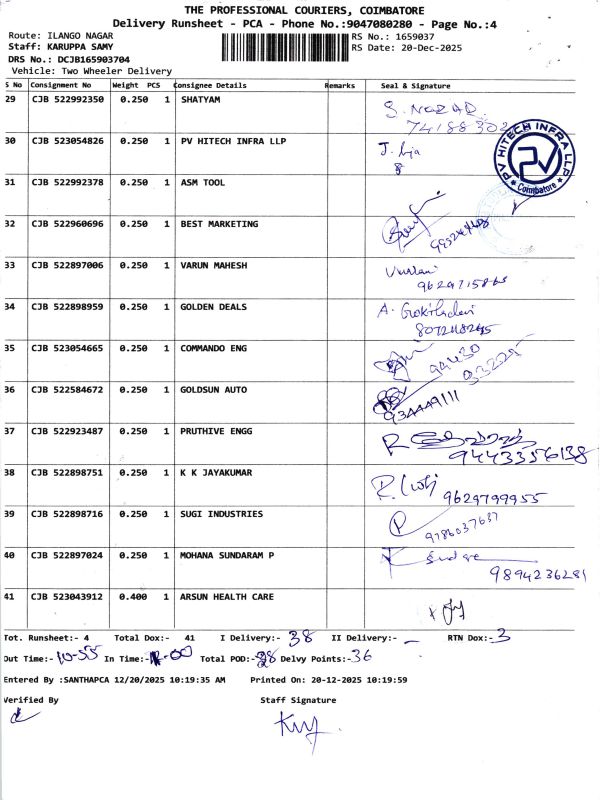 THE PROFESSIONAL COURIERS, COIMBATORE
Delivery Runsheet - PCA - Phone No.:9047080280 - Page No.:4
Route: ILANGO NAGAR RS No.: 1659037
Staff: KARUPPA SAMY RS Date: 20-Dec-2025
DRS No.: DCJB165903704
Vehicle: Two Wheeler Delivery
S No Consignment No Weight PCS Consignee Details Remarks Seal & Signature
29 CJB 522992350 0.250 1 SHATYAM
30 CJB 523054826 0.250 1 PV HITECH INFRA LLP
PV HITECH INFRA LLP PV Coimbatore
31 CJB 522992378 0.250 1 ASM TOOL
32 CJB 522960696 0.250 1 BEST MARKETING
33 CJB 522897006 0.250 1 VARUN MAHESH
34 CJB 522898959 0.250 1 GOLDEN DEALS
35 CJB 523054665 0.250 1 COMMANDO ENG
36 CJB 522584672 0.250 1 GOLDSUN AUTO
37 CJB 522923487 0.250 1 PRUTHIVE ENGG 9443356138
38 CJB 522898751 0.250 1 K K JAYAKUMAR 9629799955
39 CJB 522898716 0.250 1 SUGI INDUSTRIES 9786037637
40 CJB 522897024 0.250 1 MOHANA SUNDARAM P 9894236281
41 CJB 523043912 0.400 1 ARSUN HEALTH CARE
Tot. Runsheet:- 4 Total Dox:- 41 I Delivery:- 38 II Delivery:- - RTN Dox:- 3
Out Time:- 10-55 In Time:- Total POD:- 38 Delvy Points:- 36
Entered By :SANTHAPCA 12/20/2025 10:19:35 AM Printed On: 20-12-2025 10:19:59
Verified By Staff Signature